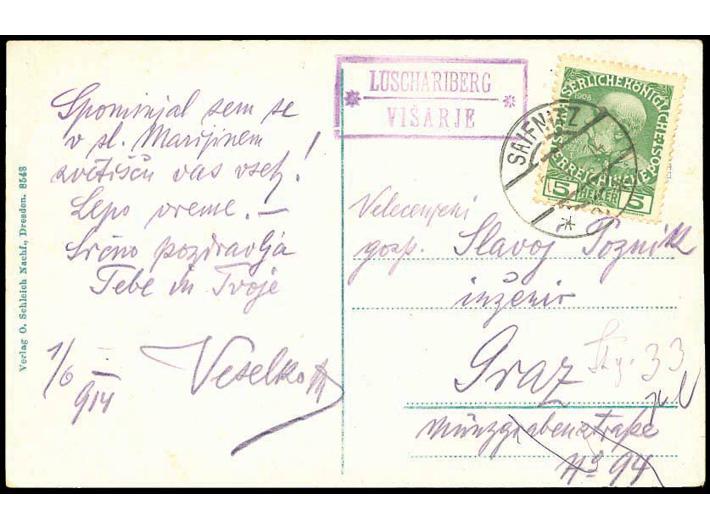 Spominjal sem se
v sl. Marijinem
svetišču vas vseh!
Lepo vreme. —
Srčno pozdravlja
Tebe in Tvoje
Veselko
1/6 914
Verlag O. Schleich Nachf., Dresden. 8548
LUSCHARIBERG
VIŠARJE
SAIFNITZ
5 HELLER 5
1908
Velecenjeni
gosp. Slavoj Požnik
inženir
Graz
33
Münzgrabenstraße
No 94